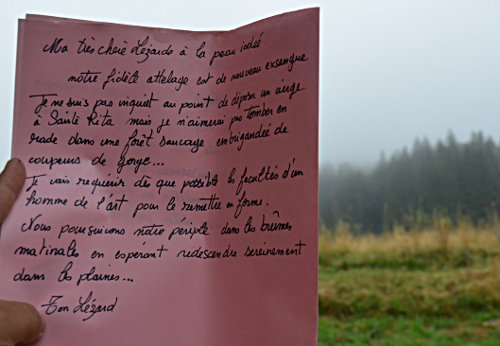 Ma très chère Lézarde à la peau iodée
notre fidèle attelage est de nouveau exsangue
Je ne suis pas inquiet au point de déposer un cierge
à Sainte Rita mais je n'aimerai pas tomber en
rade dans une forêt sauvage embrigandée de
coupeurs de gorge...
Je vais requérir dès que possible les facultés d'un
homme de l'art pour le remettre en forme.
Nous poursuivons notre périple dans les brumes
matinales en espérant redescendre sereinement
dans les plaines...
Ton Lézard